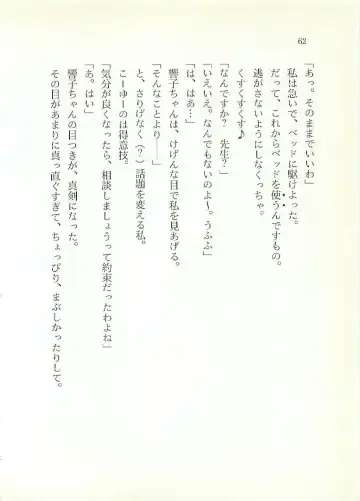 62
「あっ。そのままでいいわ」
私は急いで、ベッドに駆けよった。
だって、これからベッドを使うんですもの。
逃がさないようにしなくっちゃ。
くすくすくす♪
「なんですか？　先生？」
「いえいえ。なんでもないのよ〜。うふふ」
「は、はあ…」
響子ちゃんは、けげんな目で私を見あげる。
「そんなことより――」
と、さりげなく（？）話題を変える私。
こーゆーのは得意技。
「気分が良くなったら、相談しましょうって約束だったわよね」
「あ。はい」
響子ちゃんの目つきが、真剣になった。
その目があまりに真っ直ぐすぎて、ちょっぴり、まぶしかったりして。